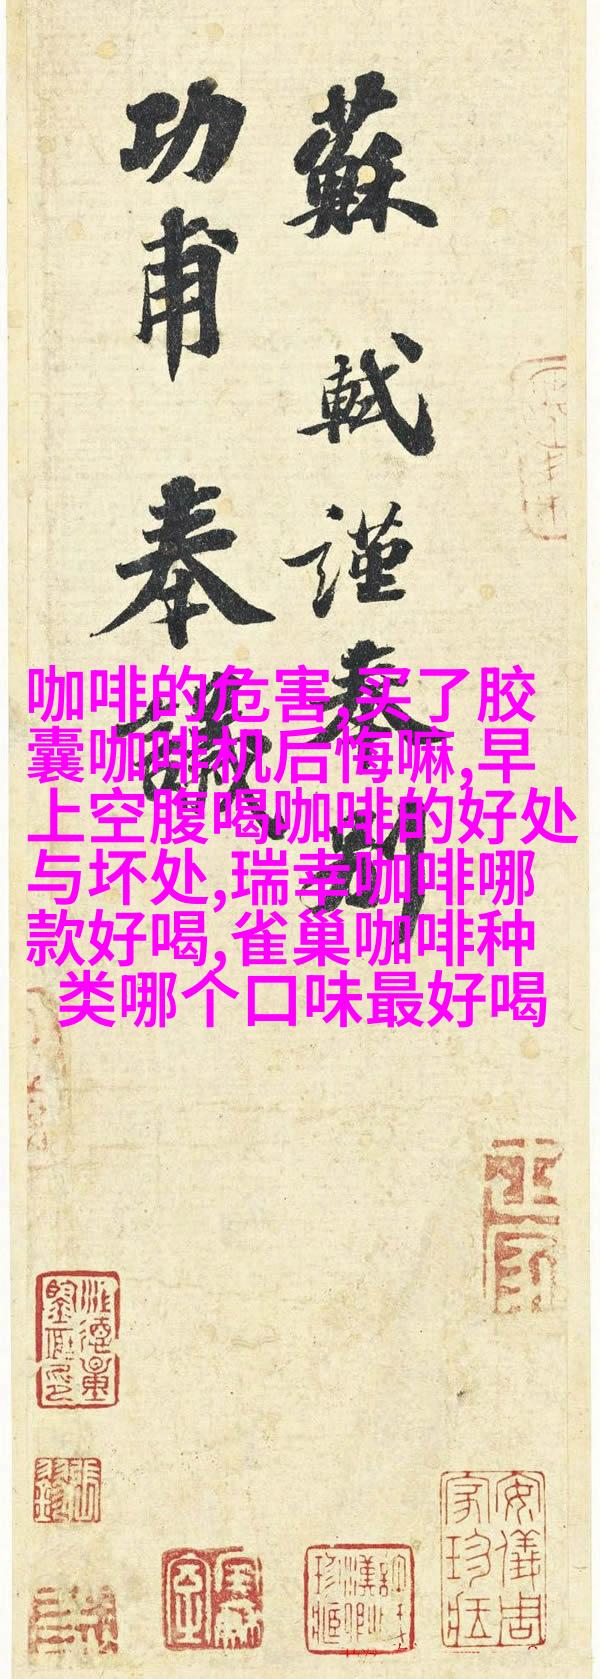 蘇軾謹奉別
功甫奉議
咖啡的危害,买了胶
囊咖啡机后悔嘛,早
上空腹喝咖啡的好处
与坏处,瑞幸咖啡哪
款好喝,雀巢咖啡种
类哪个口味最好喝
安儀周
家珍藏